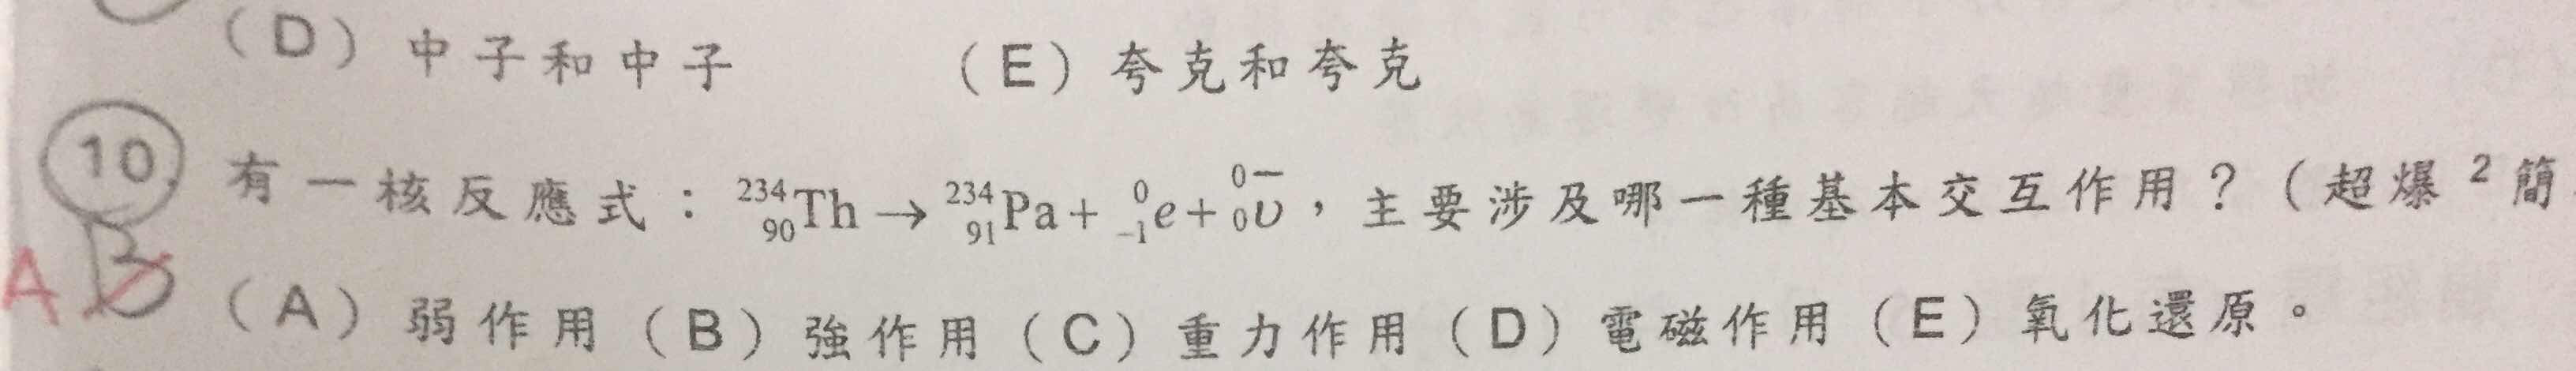 (D) 中子和中子 (E) 夸克和夸克
10. 有一核反應式：²³⁴₉₀Th → ²³⁴₉₁Pa + ⁰₋₁e + ⁰₀ῡ，主要涉及哪一種基本交互作用？(超爆²簡
A B (A) 弱作用 (B) 強作用 (C) 重力作用 (D) 電磁作用 (E) 氧化還原。